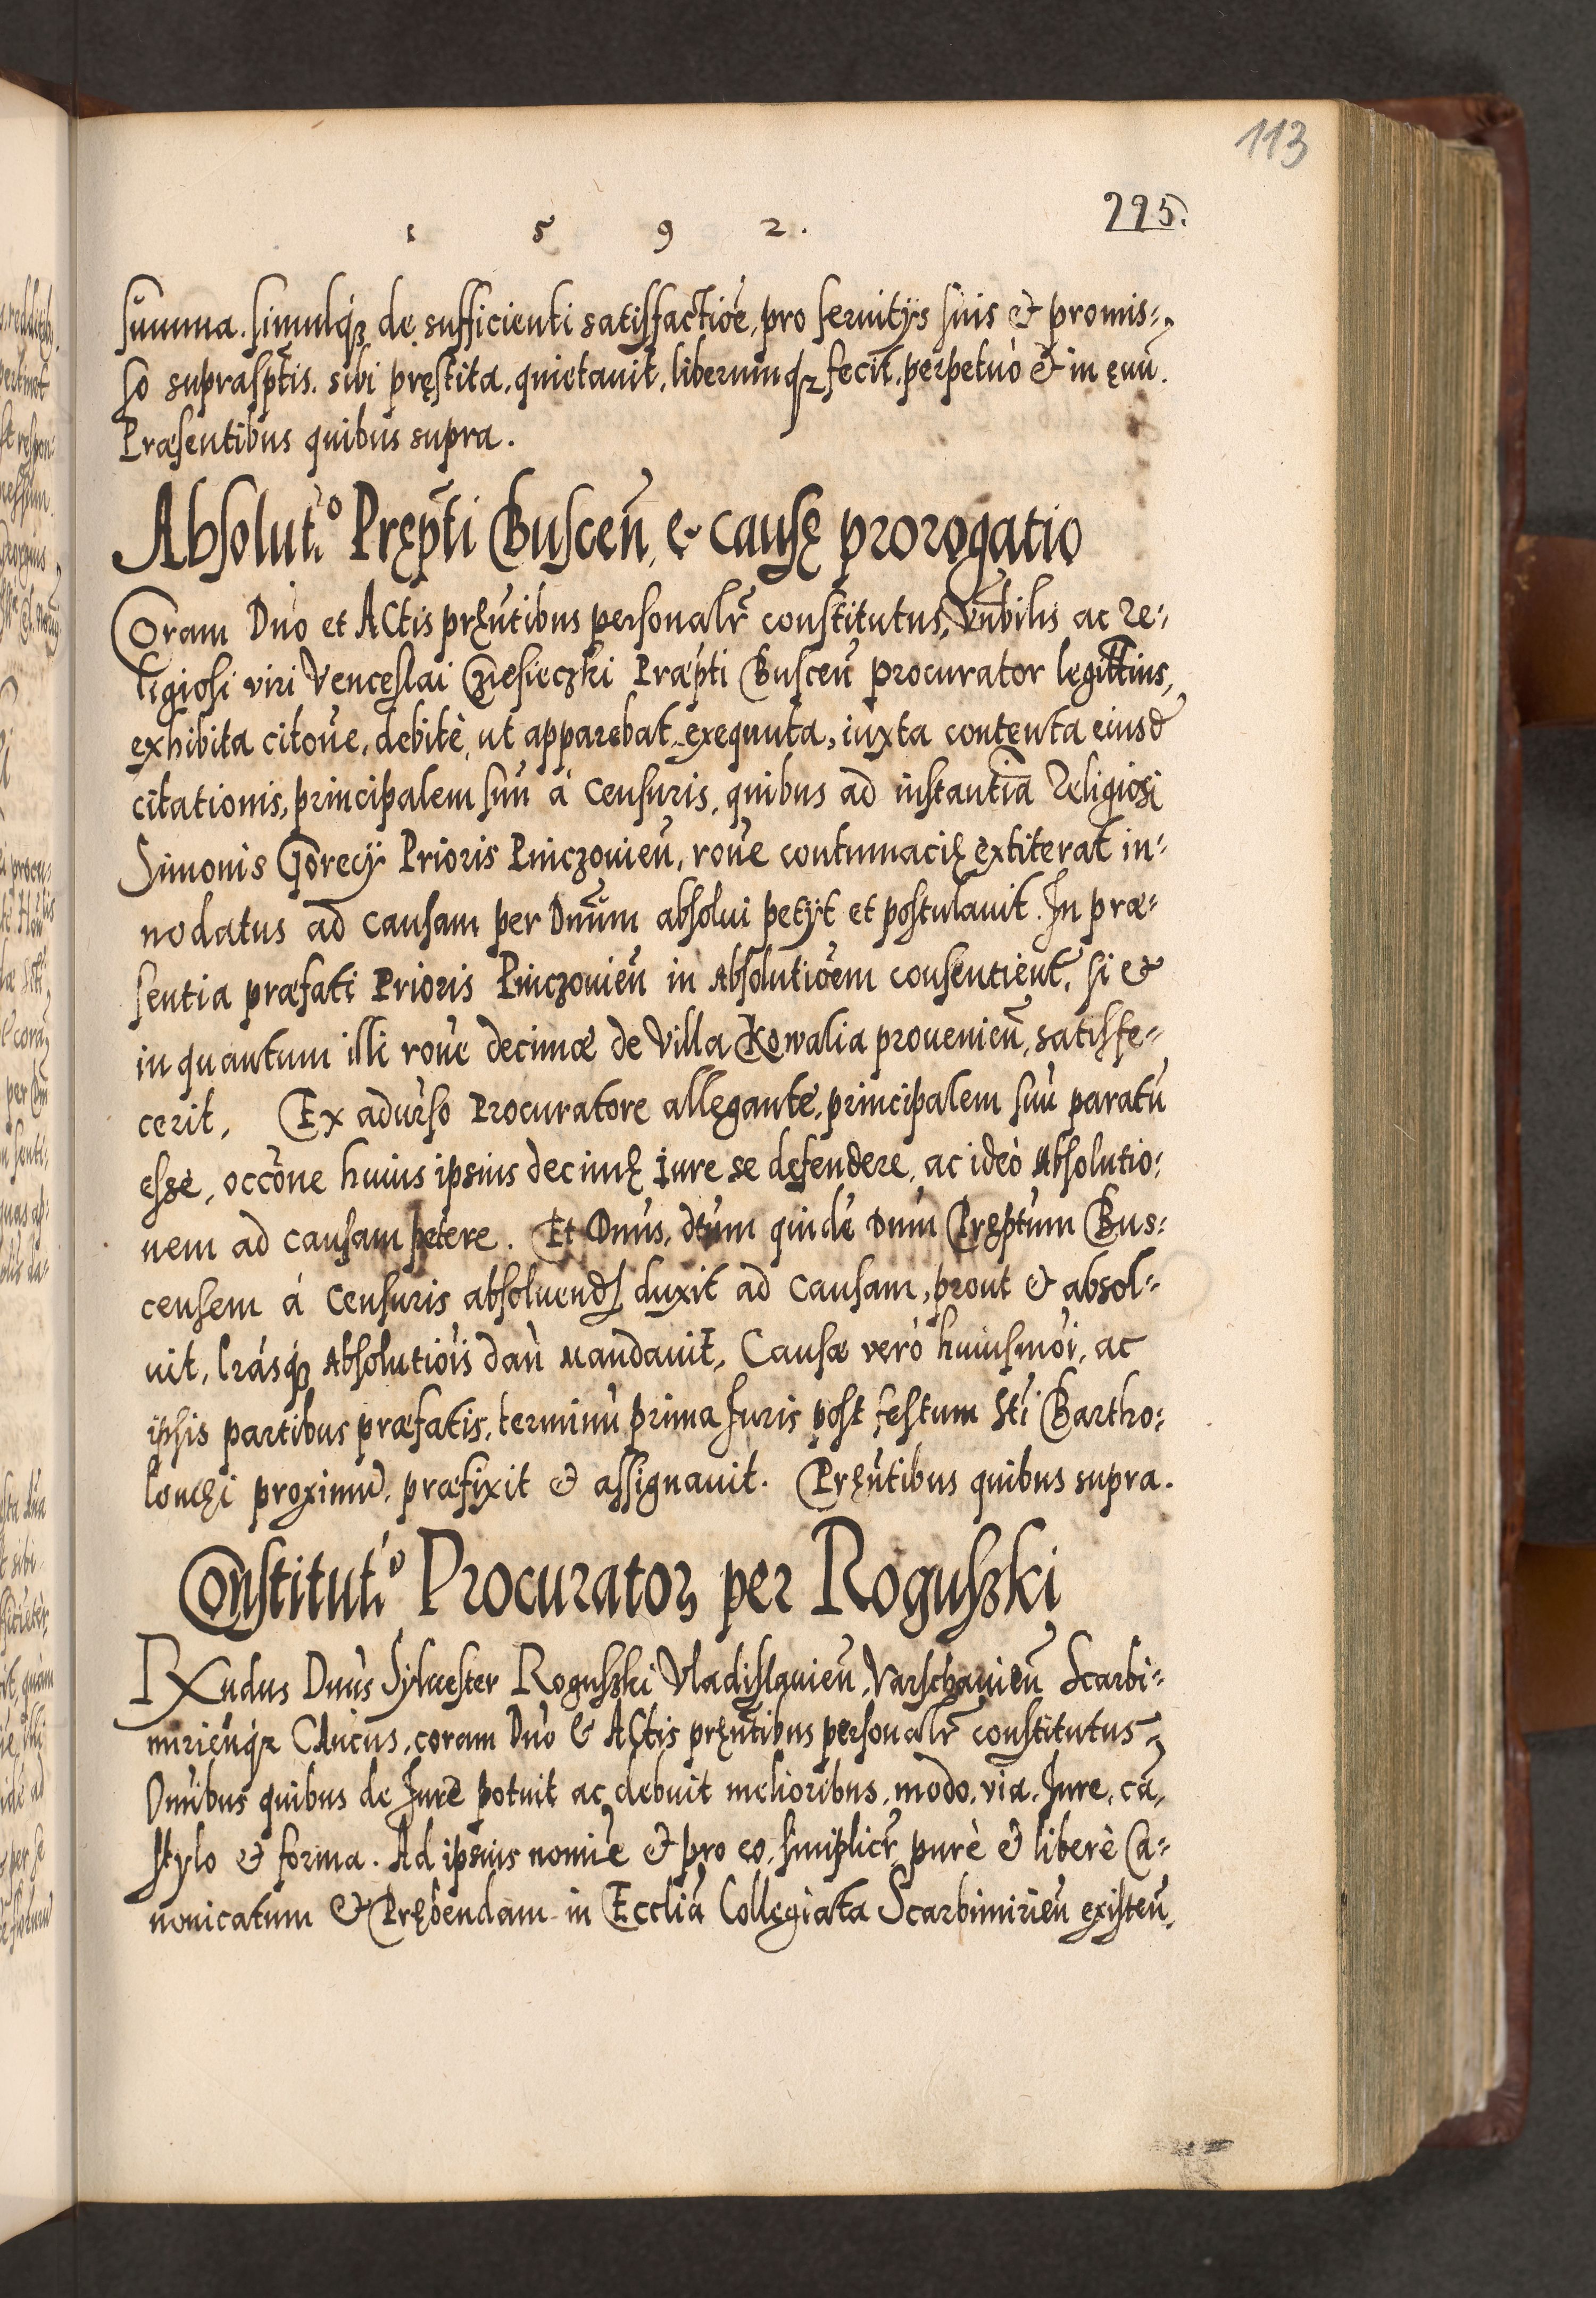 113
1 5 9 2.
225.
summa. simulq́ꝫ de sufficienti satisfactiōe, pro seruitijs suis & promis-
so suprasp̄tis. sibi pręstita, quietauit, liberumqꝫ fecit, perpetuò & in ęuū.
Præsentibus quibus supra.
Absolut.º Pręp̄ti Buscen̄, & causę prorogatio
Coram Dn̄o et Actis pręn̄tibus personalr̄ constitutus, Vn̄bilis ac Re-
ligiosi viri Venceslai Czesieczki Præp̄ti Buscen̄ procurator legitt̄ius,
exhibita citōne, debitè, ut apparebat, exequuta, iuxta contenta eiusd̄
citationis, principalem suū á censuris, quibus ad instantiā Religiosi
Simonis Gorecij Prioris Pinczouien̄, rōne contumacię extiterat in-
nodatus ad causam per Dn̄um absolui petijt et postulauit. In præ-
sentia præfati Prioris Pinczouien̄ in Absolutiōem consentient̄, si &
in quantum illi rōne decimæ de villa Kowalia prouenien̄, satisfe-
cerit, Ex aduerso Procuratore allegante, principalem suū paratū
esse, occōne huius ipsius decimę iure se defendere, ac ideò Absolutio-
nem ad causam petere. Et Dn̄us, dt̄um quidē Dn̄um Pręptum Bus-
censem á Censuris absoluend̄ duxit ad causam, prout & absol-
uit, lr̄asq́ꝫ Absolutiōis dari mandauit, Causæ verò huiusmōi, ac
ipsis partibus præfatis, terminū prima Juris post festum Sti Bartho-
lomęi proximū, præfixit & assignauit. Pręn̄tibus quibus supra.
Constitut.º Procuratorꝫ per Roguszki
RXndus Dn̄us Sylvester Roguszki Vladislauien̄, Varschauien̄ Scarbi-
mirien̄qꝫ C̄An̄cus, coram Dn̄o & Actis pręn̄tibus personalr̄ constitutus,
Om̄ibus quibus de Jure potuit ac debuit melioribus, modo, via, Jure, cā,
stylo & forma. Ad ipsius nomīe & pro eo, simplicr̄, purè & liberè Ca-
nonicatum & Pręбendam in Eccl̄ia Collegiata Scarbimirien̄ existen̄,